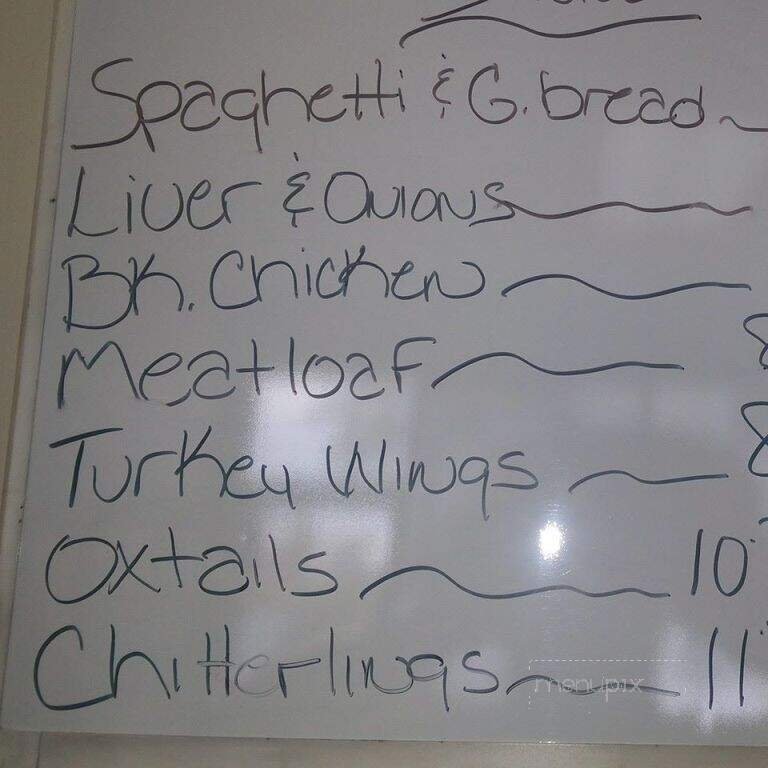 Spaghetti & G. bread
Liver & Onions
BK. Chicken
Meatloaf 8
Turkey Wings 8
Oxtails 10
Chitterlings 11
menupix